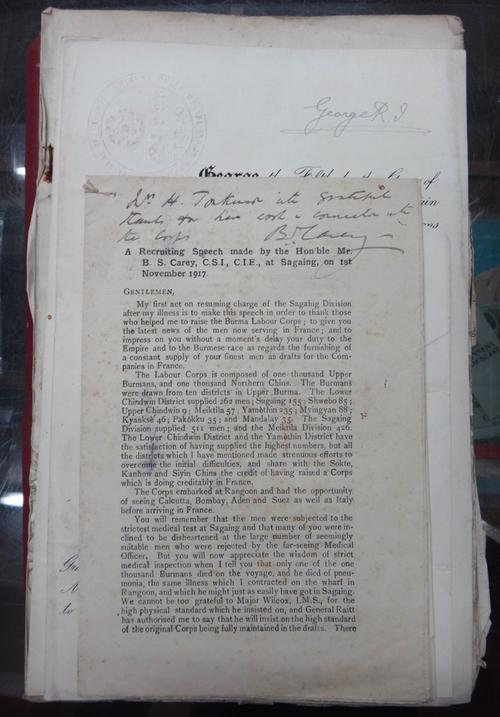 George R I
George the Fifth
of
Dr. H. Tonkinson with grateful
thanks for
the Corps B S Carey
A Recruiting Speech made by the Hon'ble Mr.
B. S. Carey, C.S.I., C.I.E., at Sagaing, on 1st
November 1917.
GENTLEMEN,
My first act on resuming charge of the Sagaing Division
after my illness is to make this speech in order to thank those
who helped me to raise the Burma Labour Corps; to give you
the latest news of the men now serving in France; and to
impress on you without a moment's delay your duty to the
Empire and to the Burmese race as regards the furnishing of
a constant supply of your finest men as drafts for the Com-
panies in France.
The Labour Corps is composed of one thousand Upper
Burmans, and one thousand Northern Chins. The Burmans
were drawn from ten districts in Upper Burma. The Lower
Chindwin District supplied 262 men; Sagaing 155; Shwebo 85;
Upper Chindwin 9; Meiktila 57; Yamèthin 235; Myingyan 88;
Kyauksè 46; Pakôkku 35; and Mandalay 35. The Sagaing
Division supplied 511 men; and the Meiktila Division 426.
The Lower Chindwin District and the Yamèthin District have
the satisfaction of having supplied the highest numbers, but all
the districts which I have mentioned made strenuous efforts to
overcome the initial difficulties, and share with the Sokte,
Kanhow and Siyin Chins the credit of having raised a Corps
which is doing creditably in France.
The Corps embarked at Rangoon and had the opportunity
of seeing Calcutta, Bombay, Aden and Suez as well as Italy
before arriving in France.
You will remember that the men were subjected to the
strictest medical test at Sagaing and that many of you were in-
clined to be disheartened at the large number of seemingly
suitable men who were rejected by the far-seeing Medical
Officer. But you will now appreciate the wisdom of strict
medical inspection when I tell you that only one of the one
thousand Burmans died on the voyage, and he died of pneu-
monia, the same illness which I contracted on the wharf in
Rangoon, and which he might just as easily have got in Sagaing.
We cannot be too grateful to Major Wilcox, I.M.S., for the
high physical standard which he insisted on, and General Raitt
has authorised me to say that he will insist on the high standard
of the original Corps being fully maintained in the drafts. There
to